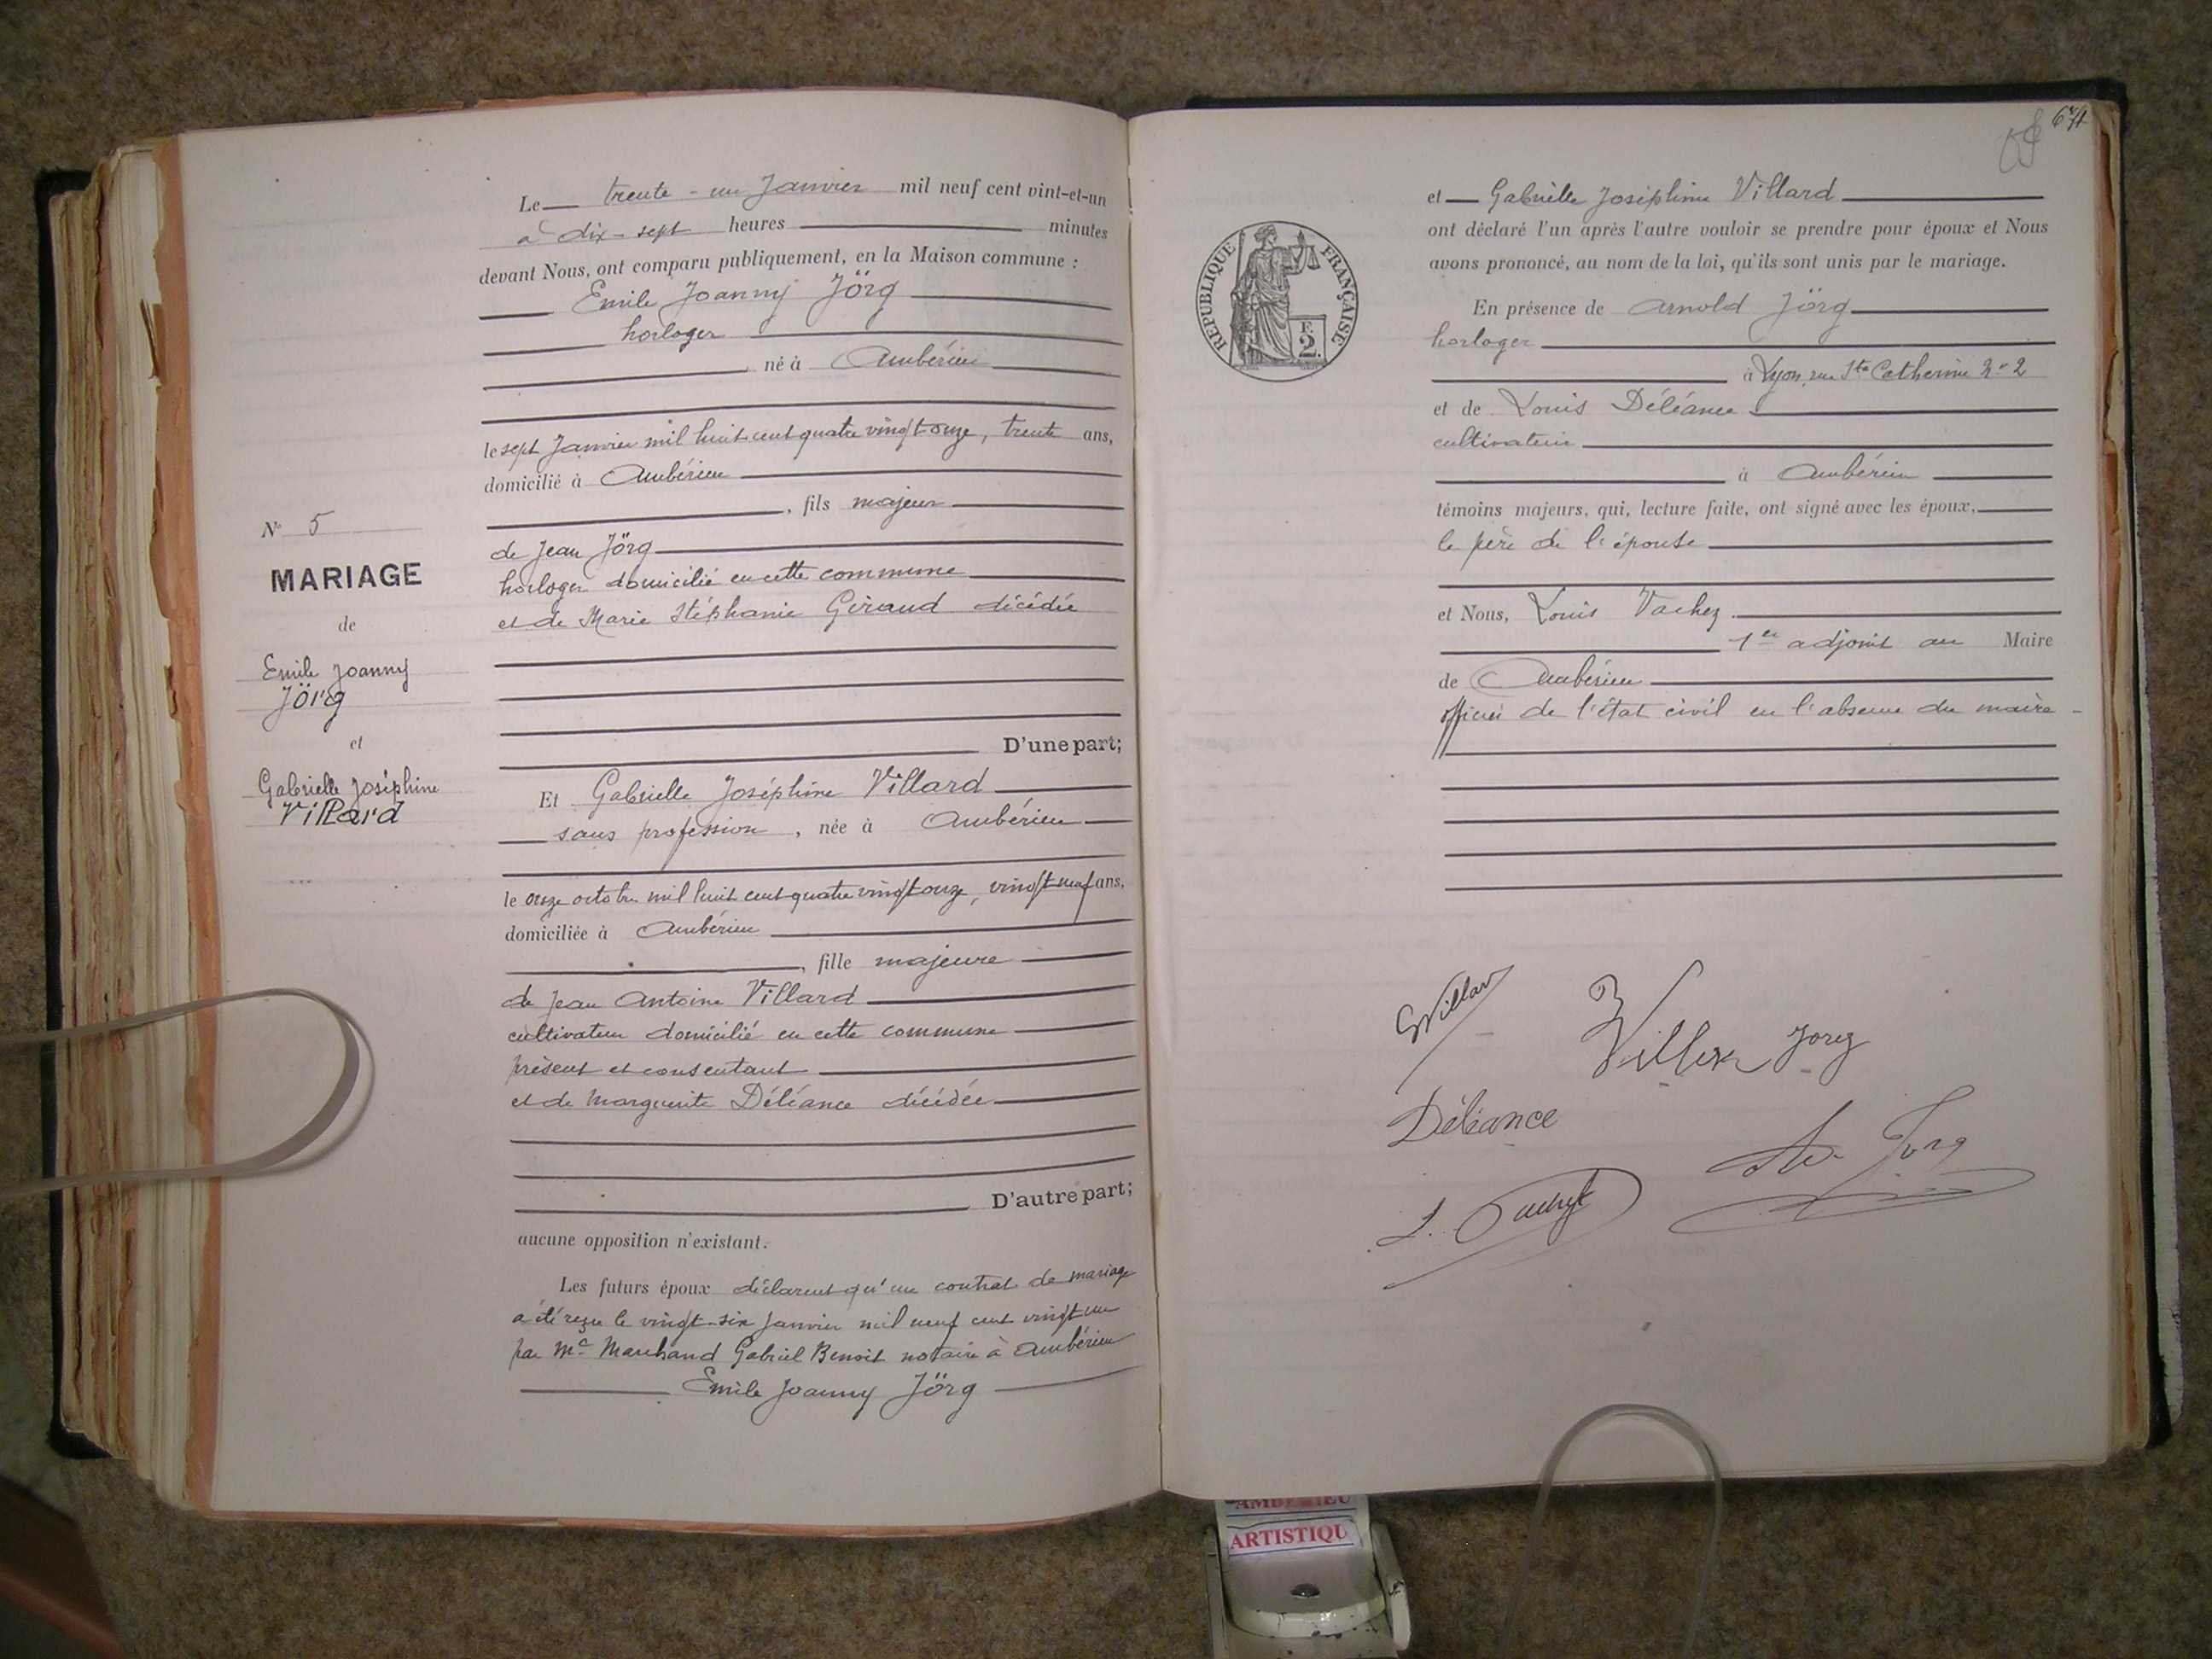 N° 5
MARIAGE
de
Emile Joanny
Jörg
et
Gabrielle Joséphine
Villard
Le trente-un Janvier mil neuf cent vint-et-un
à dix-sept heures minutes
devant Nous, ont comparu publiquement, en la Maison commune :
Emile Joanny Jörg
horloger
né à Ambérieu
le sept Janvier mil huit cent quatre vingt onze, trente ans,
domicilié à Ambérieu
, fils majeur
de Jean Jörg
horloger domicilié en cette commune
et de Marie Stéphanie Giraud décédée
D'une part;
Et Gabrielle Joséphine Villard
sans profession, née à Ambérieu
le onze octobre mil huit cent quatre vingt onze, vingt neuf ans,
domiciliée à Ambérieu
, fille majeure
de Jean Antoine Villard
cultivateur domicilié en cette commune
présent et consentant
et de Marguerite Déléance décédée
D'autre part;
aucune opposition n'existant.
Les futurs époux déclarent qu'un contrat de mariage
a été reçu le vingt-six Janvier mil neuf cent vingt un
par Me Marchand Gabriel Benoit notaire à Ambérieu
Emile Joanny Jörg
RÉPUBLIQUE FRANÇAISE
F.
2.
et Gabrielle Joséphine Villard
ont déclaré l'un après l'autre vouloir se prendre pour époux et Nous
avons prononcé, au nom de la loi, qu'ils sont unis par le mariage.
En présence de Arnold Jörg
horloger
à Lyon, rue Ste Catherine No 2
et de Louis Déléance
cultivateur
à Ambérieu
témoins majeurs, qui, lecture faite, ont signé avec les époux,
le père de l'épouse
et Nous, Louis Vachez
1er adjoint au Maire
de Ambérieu
officier de l'état civil en l'absence du maire
GVillard
Jorg
Déléance
Jorg
AMBERIEU
ARTISTIQU